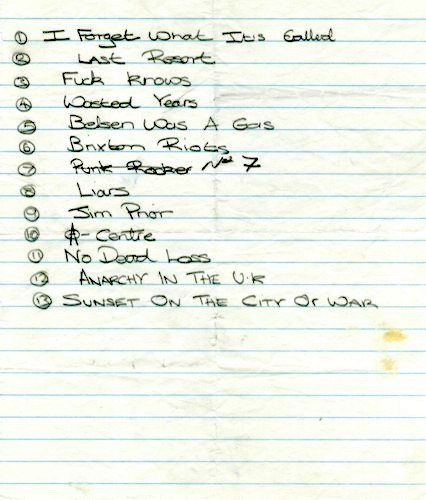 ① I Forget What Its Called
② Last Resort
③ Fuck Knows
④ Wasted Years
⑤ Belsen Was A Gas
⑥ Brixton Riots
⑦ Punk Rocker No 7
⑧ Liars
⑨ Jim Prior
⑩ A-Centre
⑪ No Dead Loss
⑫ ANARCHY IN THE U.K
⑬ SUNSET ON THE CITY OF WAR